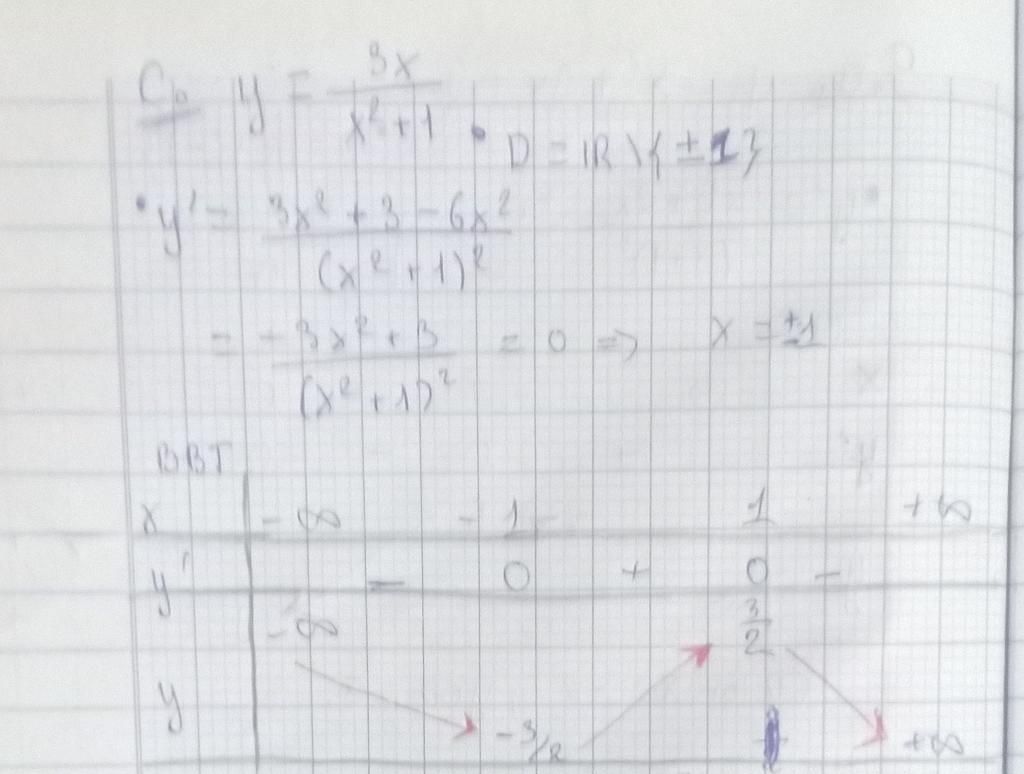 C. y = 3x / (x² + 1) • D = ℝ \ {±1}
• y' = (3x² + 3 - 6x²) / (x² + 1)²
= (-3x² + 3) / (x² + 1)² = 0 => x = ±1
BBT
x -∞ -1 1 +∞
y' - 0 + 0 -
-∞ 3/2
y -3/2 +∞